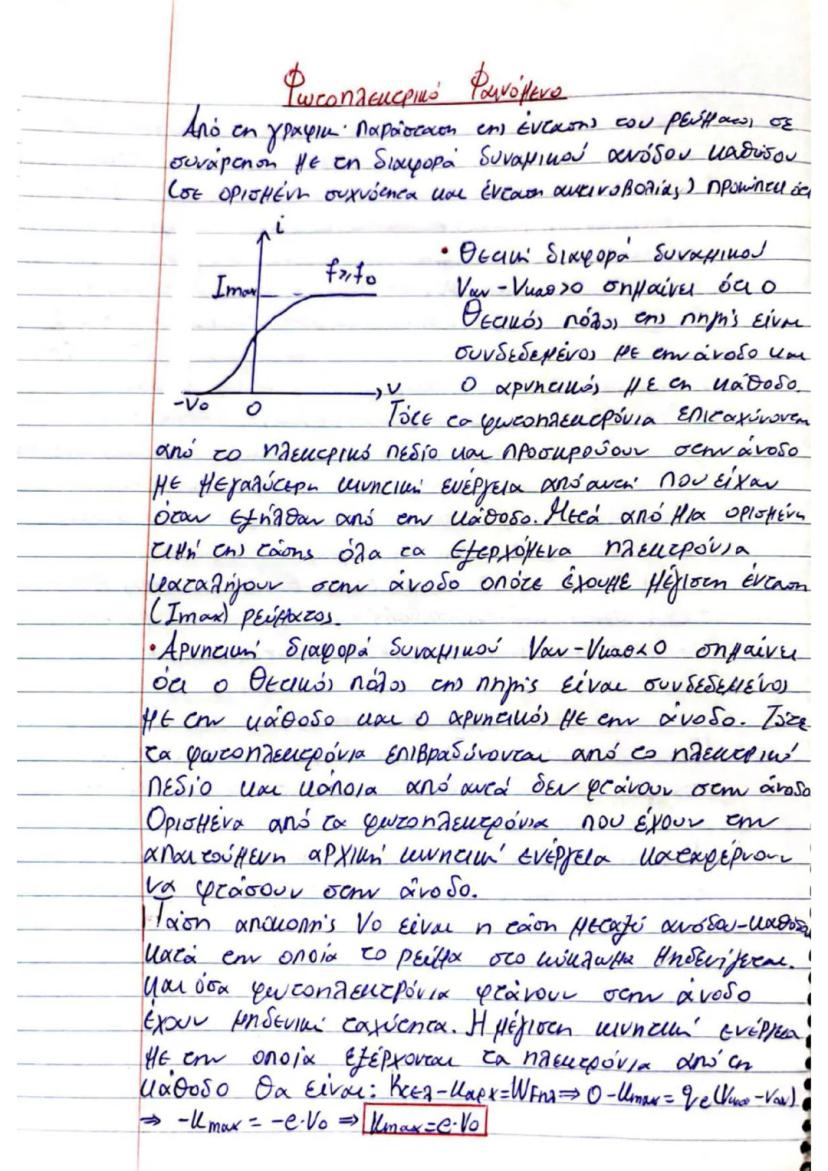 Φωτοηλεκτρικό Φαινόμενο
Από τη γραφικη παράσταση της έντασης του ρεύματος σε
συνάρτηση με τη διαφορά δυναμικού ανόδου καθόδου
(σε ορισμένη συχνότητα και ένταση ακτινοβολίας) προκύπτει ότι
i
Imax
f≥f0
-V0
0
V
• Θετική διαφορά δυναμικού
Vαν-Vκαθ>0 σημαίνει ότι ο
Θετικός πόλος της πηγής είναι
συνδεδεμένος με την άνοδο και
ο αρνητικός με τη κάθοδο.
Τότε τα φωτοηλεκτρόνια επιταχύνονται
από το ηλεκτρικό πεδίο και προσκρούουν στην άνοδο
με μεγαλύτερη κινητική ενέργεια από αυτή που είχαν
όταν εξήλθαν από την κάθοδο. Μετά από μια ορισμένη
τιμή της τάσης όλα τα εξερχόμενα ηλεκτρόνια
καταλήγουν στην άνοδο οπότε έχουμε μέγιστη ένταση
(Imax) ρεύματος.
• Αρνητική διαφορά δυναμικού Vαν-Vκαθ<0 σημαίνει
ότι ο Θετικός πόλος της πηγής είναι συνδεδεμένος
με την κάθοδο και ο αρνητικός με την άνοδο. Τότε
τα φωτοηλεκτρόνια επιβραδύνονται από το ηλεκτρικό
πεδίο και κάποια από αυτά δεν φτάνουν στην άνοδο
Ορισμένα από τα φωτοηλεκτρόνια που έχουν την
απαιτούμενη αρχική κινητική ενέργεια καταφέρνουν
να φτάσουν στην άνοδο.
Τάση αποκοπής V0 είναι η τάση μεταξύ ανόδου-καθόδου
κατά την οποία το ρεύμα στο κύκλωμα μηδενίζεται.
και όσα φωτοηλεκτρόνια φτάνουν στην άνοδο
έχουν μηδενική ταχύτητα. Η μέγιστη κινητική ενέργεια
με την οποία εξέρχονται τα ηλεκτρόνια από τη
κάθοδο θα είναι: Kτελ-Kαρχ=WFηλ⇒ 0-Kmax = qe(Vκαθ-Vαν)
⇒ -Kmax = -e·V0 ⇒ Kmax=e·V0